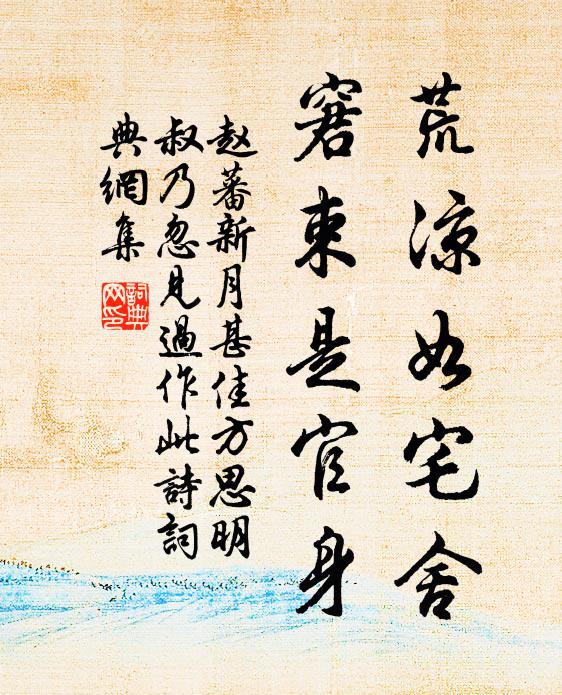 荒涼如宅舍
窘束是官身
赵蕃新月甚佳方思明
叔乃忽见過作此詩詞
典網集
詞典
网印